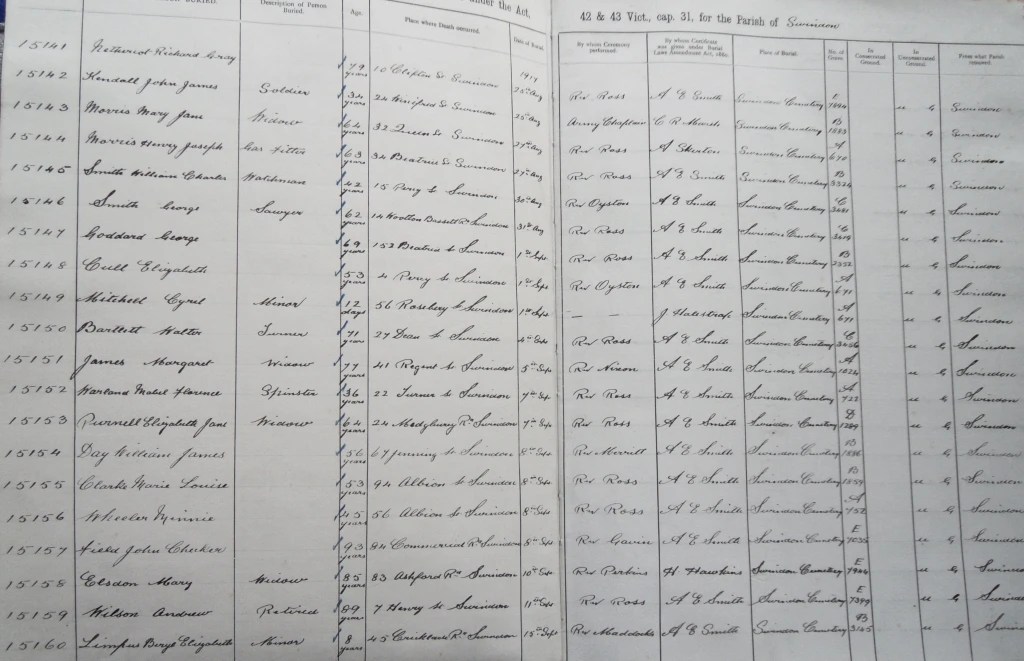 BURIED.
Description of Person Buried.
Age.
Place where Death occurred.
under the Act,
Date of Burial
42 & 43 Vict., cap. 31, for the Parish of Swindon
By whom Ceremony performed.
By whom Certificate was given under Burial Laws Amendment Act, 1880.
Place of Burial.
No. of Grave.
In Consecrated Ground.
In Unconsecrated Ground.
From what Parish removed.
1919
15141 Richard Gray 79 years 10 Clifton St Swindon 25th Aug Rev Ross A E Smith Swindon Cemetery E u G Swindon
15142 Kendall John James Soldier 34 years 24 Winifred St Swindon 25th Aug Army Chaplain Swindon Cemetery B u G Swindon
15143 Morris Mary Jane Widow 64 years 32 Queen St Swindon 27th Aug Rev Ross Swindon Cemetery A u G Swindon
15144 Morris Henry Joseph Gas Fitter 63 years 34 Beatrice St Swindon 27th Aug Rev Ross A E Smith Swindon Cemetery B u G Swindon
15145 Smith William Charles Watchman 42 years 15 Percy St Swindon 30th Aug Rev Oyston A E Smith Swindon Cemetery C u G Swindon
15146 Smith George Sawyer 62 years 14 Wootton Bassett Rd Swindon 31st Aug Rev Ross A E Smith Swindon Cemetery C u G Swindon
15147 Goddard George 69 years 152 Beatrice St Swindon 1st Sept Rev Ross A E Smith Swindon Cemetery B 2352 u G Swindon
15148 Cull Elizabeth 53 years 4 Percy St Swindon 1st Sept Rev Oyston A E Smith Swindon Cemetery A 671 u G Swindon
15149 Mitchell Cyril Minor 12 days 56 Rosebery St Swindon 1st Sept — — Swindon Cemetery A 671 u G Swindon
15150 Bartlett Walter Turner 71 years 27 Dean St Swindon 4th Sept Rev Ross A E Smith Swindon Cemetery C u G Swindon
15151 James Margaret Widow 77 years 41 Regent St Swindon 5th Sept Rev Nixon A E Smith Swindon Cemetery A u G Swindon
15152 Harland Mabel Florence Spinster 36 years 22 Turner St Swindon 7th Sept Rev Ross A E Smith Swindon Cemetery A 722 u G Swindon
15153 Purnell Elizabeth Jane Widow 64 years 24 Rd Swindon 7th Sept Rev Ross A E Smith Swindon Cemetery D u G Swindon
15154 Day William James 56 years 67 Jennings St Swindon 8th Sept Rev Merritt A E Smith Swindon Cemetery B u G Swindon
15155 Clarke Marie Louise 53 years 94 Albion St Swindon 8th Sept Rev Ross A E Smith Swindon Cemetery B u G Swindon
15156 Wheeler Minnie 45 years 56 Albion St Swindon 8th Sept Rev Ross A E Smith Swindon Cemetery A 752 u G Swindon
15157 Field John Checker 93 years 84 Commercial Rd Swindon 8th Sept Rev Gavin A E Smith Swindon Cemetery E u G Swindon
15158 Elsdon Mary Widow 85 years 83 Ashford Rd Swindon 10th Sept Rev Perkins H Hawkins Swindon Cemetery E u G Swindon
15159 Wilson Andrew Retired 89 years 7 Henry St Swindon 11th Sept Rev Ross A E Smith Swindon Cemetery E u G Swindon
15160 Limpus Beryl Elizabeth Minor 8 years 45 Cricklade Rd Swindon 15th Sept Rev Maddocks A E Smith Swindon Cemetery B u G Swindon